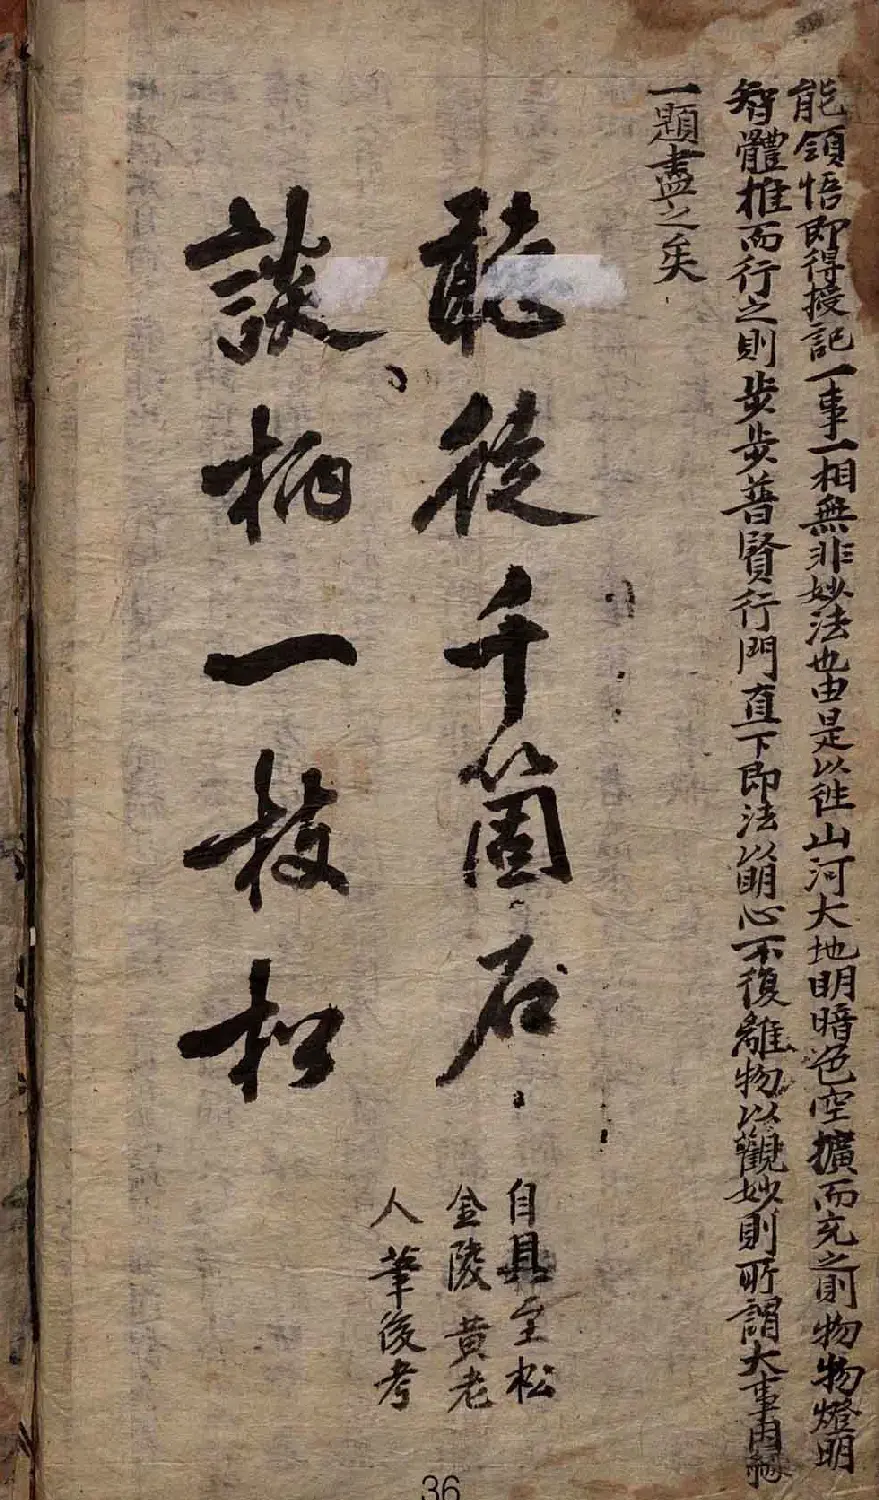 能領悟即得授記一事一相無非妙法也由是以往山河大地明暗色空擴而充之則物物燈明
智體推而行之則步步普賢行門直下即法以明心不復離物以觀妙則所謂大事因緣
一題盡之矣
聽從千箇石
談柄一枝松
自具至松
金陵黃老
人筆後考
36